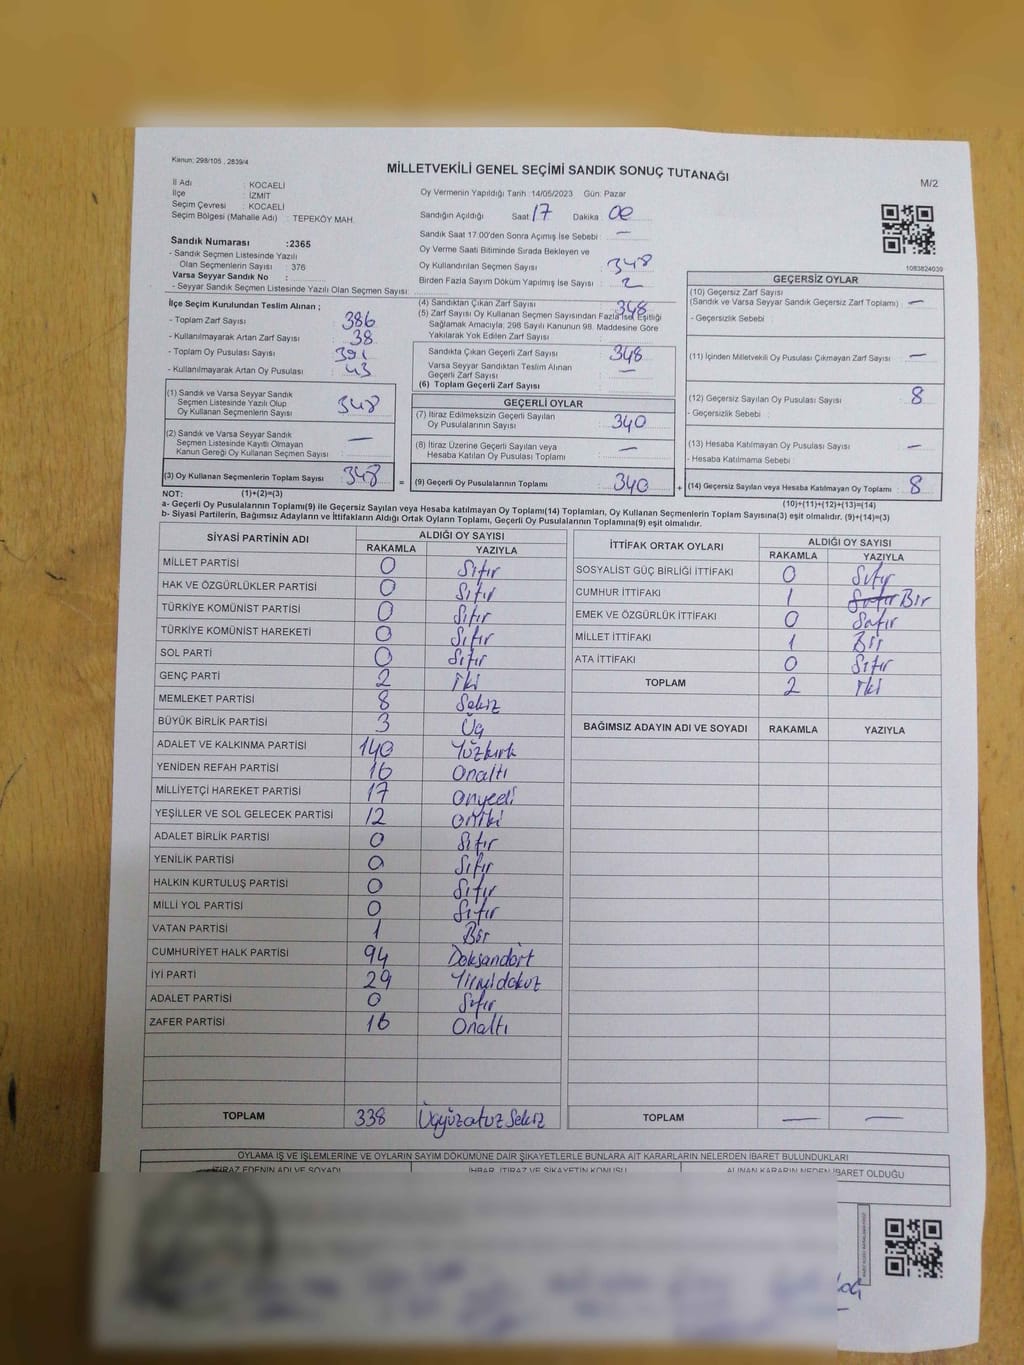 Kanun: 298/105 , 2839/4
MİLLETVEKİLİ GENEL SEÇİMİ SANDIK SONUÇ TUTANAĞI
M/2
İl Adı : KOCAELİ
İlçe : İZMİT
Seçim Çevresi : KOCAELİ
Seçim Bölgesi (Mahalle Adı) : TEPEKÖY MAH.
Sandık Numarası :2365
- Sandık Seçmen Listesinde Yazılı
Olan Seçmenlerin Sayısı : 376
Varsa Seyyar Sandık No :
- Seyyar Sandık Seçmen Listesinde Yazılı Olan Seçmen Sayısı:
Oy Vermenin Yapıldığı Tarih : 14/05/2023 Gün: Pazar
Sandığın Açıldığı Saat 17 Dakika 00
Sandık Saat 17:00'den Sonra Açımış İse Sebebi : —
Oy Verme Saati Bitiminde Sırada Bekleyen ve
Oy Kullandırılan Seçmen Sayısı : 348
Birden Fazla Sayım Döküm Yapılmış İse Sayısı : 2
1083824039
İlçe Seçim Kurulundan Teslim Alınan ;
- Toplam Zarf Sayısı : 386
- Kullanılmayarak Artan Zarf Sayısı : 38
- Toplam Oy Pusulası Sayısı : 391
- Kullanılmayarak Artan Oy Pusulası : 43
(1) Sandık ve Varsa Seyyar Sandık
Seçmen Listesinde Yazılı Olup
Oy Kullanan Seçmenlerin Sayısı : 348
(2) Sandık ve Varsa Seyyar Sandık
Seçmen Listesinde Kayıtlı Olmayan
Kanun Gereği Oy Kullanan Seçmen Sayısı : —
(3) Oy Kullanan Seçmenlerin Toplam Sayısı : 348 =
(4) Sandıktan Çıkan Zarf Sayısı : 348
(5) Zarf Sayısı Oy Kullanan Seçmen Sayısından Fazla İse, Eşitliği
Sağlamak Amacıyla; 298 Sayılı Kanunun 98. Maddesine Göre
Yakılarak Yok Edilen Zarf Sayısı :
Sandıkta Çıkan Geçerli Zarf Sayısı : 348
Varsa Seyyar Sandıktan Teslim Alınan
Geçerli Zarf Sayısı : —
(6) Toplam Geçerli Zarf Sayısı :
GEÇERLİ OYLAR
(7) İtiraz Edilmeksizin Geçerli Sayılan
Oy Pusulalarının Sayısı : 340
(8) İtiraz Üzerine Geçerli Sayılan veya
Hesaba Katılan Oy Pusulası Toplamı : —
(9) Geçerli Oy Pusulalarının Toplamı : 340 +
GEÇERSİZ OYLAR
(10) Geçersiz Zarf Sayısı
(Sandık ve Varsa Seyyar Sandık Geçersiz Zarf Toplamı) : —
- Geçersizlik Sebebi :
(11) İçinden Milletvekili Oy Pusulası Çıkmayan Zarf Sayısı : —
(12) Geçersiz Sayılan Oy Pusulası Sayısı : 8
- Geçersizlik Sebebi :
(13) Hesaba Katılmayan Oy Pusulası Sayısı : —
- Hesaba Katılmama Sebebi :
(14) Geçersiz Sayılan veya Hesaba Katılmayan Oy Toplamı : 8
NOT: (1)+(2)=(3) (10)+(11)+(12)+(13)=(14)
a- Geçerli Oy Pusulalarının Toplamı(9) ile Geçersiz Sayılan veya Hesaba katılmayan Oy Toplamı(14) Toplamları, Oy Kullanan Seçmenlerin Toplam Sayısına(3) eşit olmalıdır. (9)+(14)=(3)
b- Siyasi Partilerin, Bağımsız Adayların ve İttifakların Aldığı Ortak Oyların Toplamı, Geçerli Oy Pusulalarının Toplamına(9) eşit olmalıdır.
SİYASİ PARTİNİN ADI ALDIĞI OY SAYISI
RAKAMLA YAZIYLA
MİLLET PARTİSİ 0 Sıfır
HAK VE ÖZGÜRLÜKLER PARTİSİ 0 Sıfır
TÜRKİYE KOMÜNİST PARTİSİ 0 Sıfır
TÜRKİYE KOMÜNİST HAREKETİ 0 Sıfır
SOL PARTİ 0 Sıfır
GENÇ PARTİ 2 İki
MEMLEKET PARTİSİ 8 Sekiz
BÜYÜK BİRLİK PARTİSİ 3 Üç
ADALET VE KALKINMA PARTİSİ 140 Yüzkırk
YENİDEN REFAH PARTİSİ 16 Onaltı
MİLLİYETÇİ HAREKET PARTİSİ 17 Onyedi
YEŞİLLER VE SOL GELECEK PARTİSİ 12 Oniki
ADALET BİRLİK PARTİSİ 0 Sıfır
YENİLİK PARTİSİ 0 Sıfır
HALKIN KURTULUŞ PARTİSİ 0 Sıfır
MİLLİ YOL PARTİSİ 0 Sıfır
VATAN PARTİSİ 1 Bir
CUMHURİYET HALK PARTİSİ 94 Doksandört
İYİ PARTİ 29 Yirmidokuz
ADALET PARTİSİ 0 Sıfır
ZAFER PARTİSİ 16 Onaltı
TOPLAM 338 Üçyüzotuz Sekiz
İTTİFAK ORTAK OYLARI ALDIĞI OY SAYISI
RAKAMLA YAZIYLA
SOSYALİST GÜÇ BİRLİĞİ İTTİFAKI 0 Sıfır
CUMHUR İTTİFAKI 1 Sıfır Bir
EMEK VE ÖZGÜRLÜK İTTİFAKI 0 Sıfır
MİLLET İTTİFAKI 1 Bir
ATA İTTİFAKI 0 Sıfır
TOPLAM 2 İki
BAĞIMSIZ ADAYIN ADI VE SOYADI RAKAMLA YAZIYLA
TOPLAM — —
OYLAMA İŞ VE İŞLEMLERİNE VE OYLARIN SAYIM DÖKÜMÜNE DAİR ŞİKAYETLERLE BUNLARA AİT KARARLARIN NELERDEN İBARET BULUNDUKLARI
İTİRAZ EDENİN ADI VE SOYADI İHBAR, İTİRAZ VE ŞİKAYETİN KONUSU ALINAN KARARIN NEDEN İBARET OLDUĞU